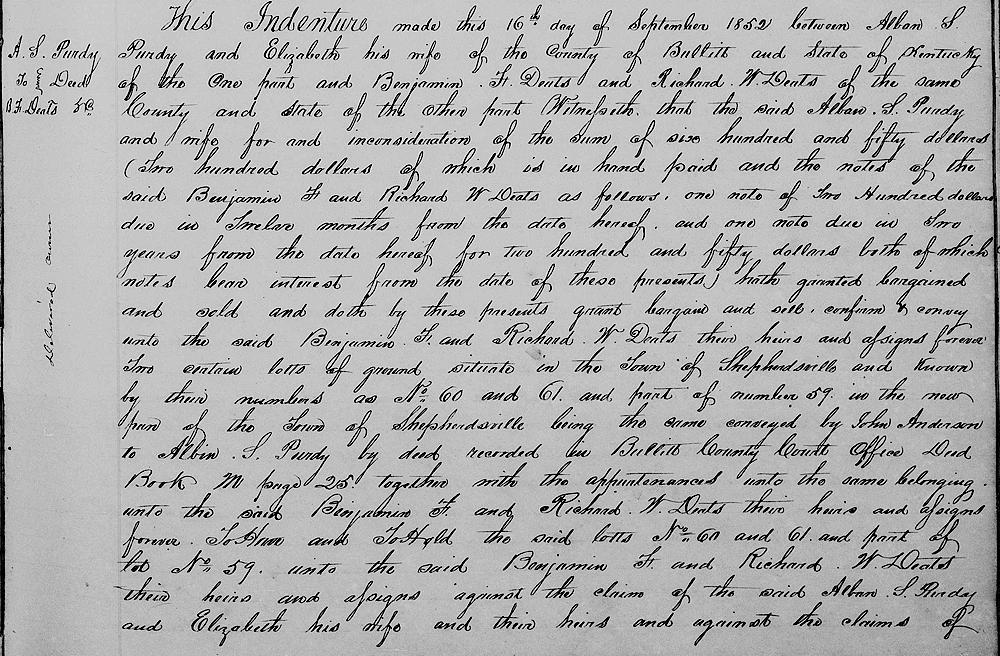 This Indenture made this 16th day of September 1852 between Alban . S.
A. S. Purdy
To Deed
B. F. Deats &c
Purdy and Elizabeth his wife of the County of Bullitt and State of Kentucky
of the One part and Benjamin . F. Deats and Richard . W. Deats of the same
County and State of the other part Witnesseth. that the said Alban . S. Purdy
and wife for and inconsideration of the Sum of six hundred and fifty dollars
(Two hundred dollars of which is in hand paid and the notes of the
said Benjamin F and Richard W Deats as follows. one note of Two Hundred dollars
due in Twelve months from the date hereof. and one note due in Two
years from the date hereof for two hundred and fifty dollars both of which
notes bear interest from the date of these presents) hath granted bargained
and sold and doth by these presents grant bargain and sell. confirm & convey
unto the said Benjamin . F. and Richard . W. Deats their heirs and assigns forever
Two certain lotts of ground situate in the Town of Shepherdsville and Known
by their numbers as No. 60 and 61. and part of number 59. in the new
part of the Town of Shepherdsville being the same conveyed by John Anderson
to Albin . S. Purdy by deed recorded in Bullitt County Court Office Deed
Book M page 25 together with the appurtenances unto the same belonging.
unto the said Benjamin F. and Richard . W. Deats their heirs and assigns
forever . To Have and To Hold the said lotts No. 60 and 61. and part of
lot No. 59. unto the said Benjamin F. and Richard . W. Deats
their heirs and assigns against the claim of the said Alban . S. Purdy
and Elizabeth his wife and their heirs and against the claims of
Delivered